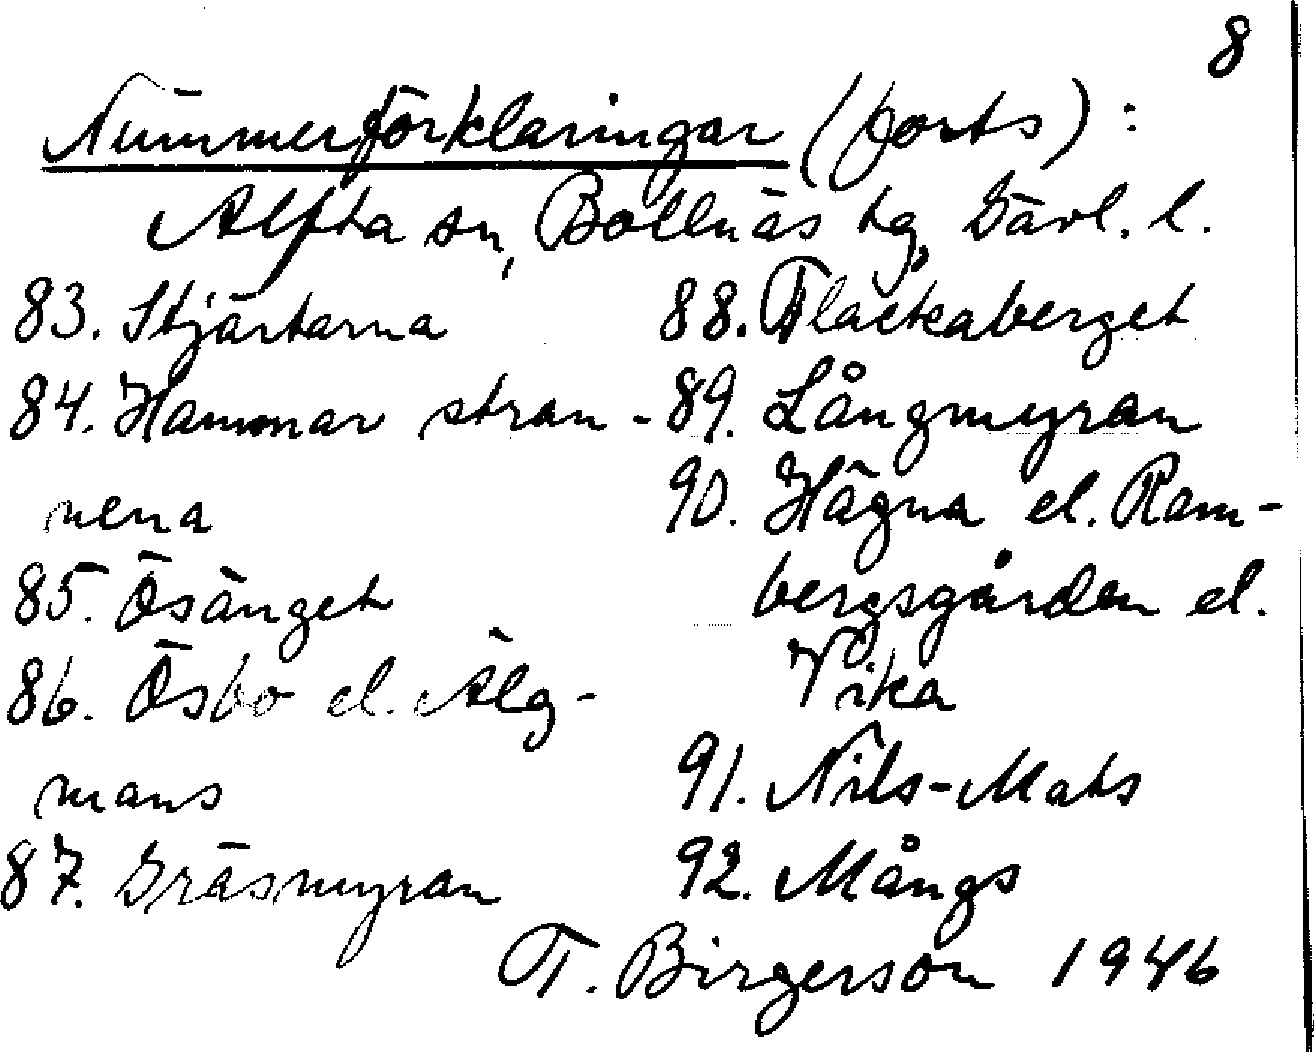 8
Nummerförklaringar (forts):
Alfta sn, Bollnäs tg, Gävl. l.
83. Stjärtarna
84. Hammar stran-
nena
85. Ösänget
86. Ösbo el. Älg-
mans
87. Gräsmyran
88. Flackaberget
89. Långmyran
90. Hägna el. Ram-
bergsgården el.
Vika
91. Nils-Mats
92. Mångs
T. Birgerson 1946